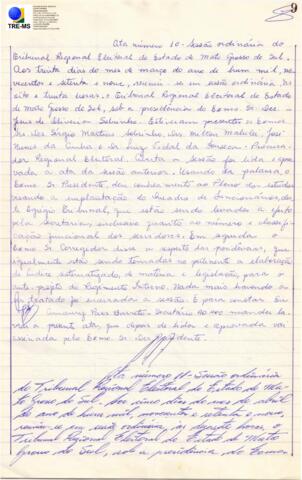 TRE-MS
9
Ata número 10 - Sessão ordinária do
Tribunal Regional Eleitoral do Estado de Mato Grosso do Sul.
Aos trinta dias do mês de março do ano de hum mil, no-
vecentos e setenta e nove, reuniu-se em sessão ordinária, às
oito e trinta horas, o Tribunal Regional Eleitoral do Estado
de Mato Grosso do Sul, sob a presidência do Exmo. Sr. Des.
Jesus de Oliveira Sobrinho. Estiveram presentes os Exmos.
Srs. Des. Sérgio Martins Sobrinho, Drs. Milton Malulei, José
Nunes da Cunha e
Procura-
dor Regional Eleitoral. Aberta a sessão foi lida e apro-
vada a ata da sessão anterior. Usando da palavra, o
Exmo. Sr. Presidente, deu conhecimento ao Pleno dos estudos
visando a implantação do Quadro de Funcionários, des-
te Egrégio Tribunal, que estão sendo levados a efeito
pela Secretaria, inclusive quanto ao número e classifi-
cação funcional dos servidores. Em seguida o
Exmo. Sr. Corregedor disse a respeito das providências, que
igualmente estão sendo tomadas no pertinente a elaboração
de índice sistematizado, de matéria e legislação, para o
ante-projeto do Regimento Interno. Nada mais havendo a
ser tratado foi encerrada a sessão. E para constar Eu
Amaury Pires Barreto - Secretário ad hoc mandei la-
vrar a presente ata, que depois de lida e aprovada vai
assinada pelo Exmo. Sr. Des. Presidente.
Ata número 11 - Sessão ordinária
do Tribunal Regional Eleitoral do Estado de Ma-
to Grosso do Sul. Aos cinco dias do mês de abril
do ano de hum mil, novecentos e setenta e nove,
reuniu-se em sessão ordinária, às dezessete horas, o
Tribunal Regional Eleitoral do Estado de Mato
Grosso do Sul, sob a presidência do Exmo.